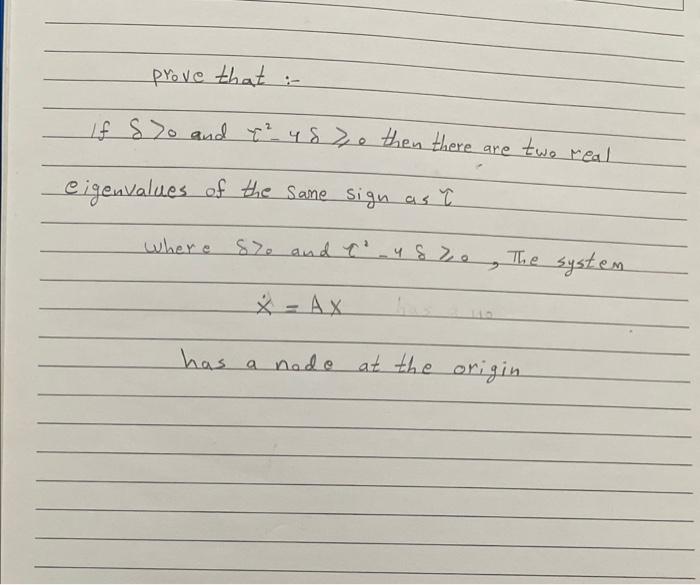 prove that :-
If δ>0 and τ²-4δ ≥0 then there are two real
eigenvalues of the same sign as τ
where δ>0 and τ²-4δ≥0, The system
ẋ = Ax
has a node at the origin